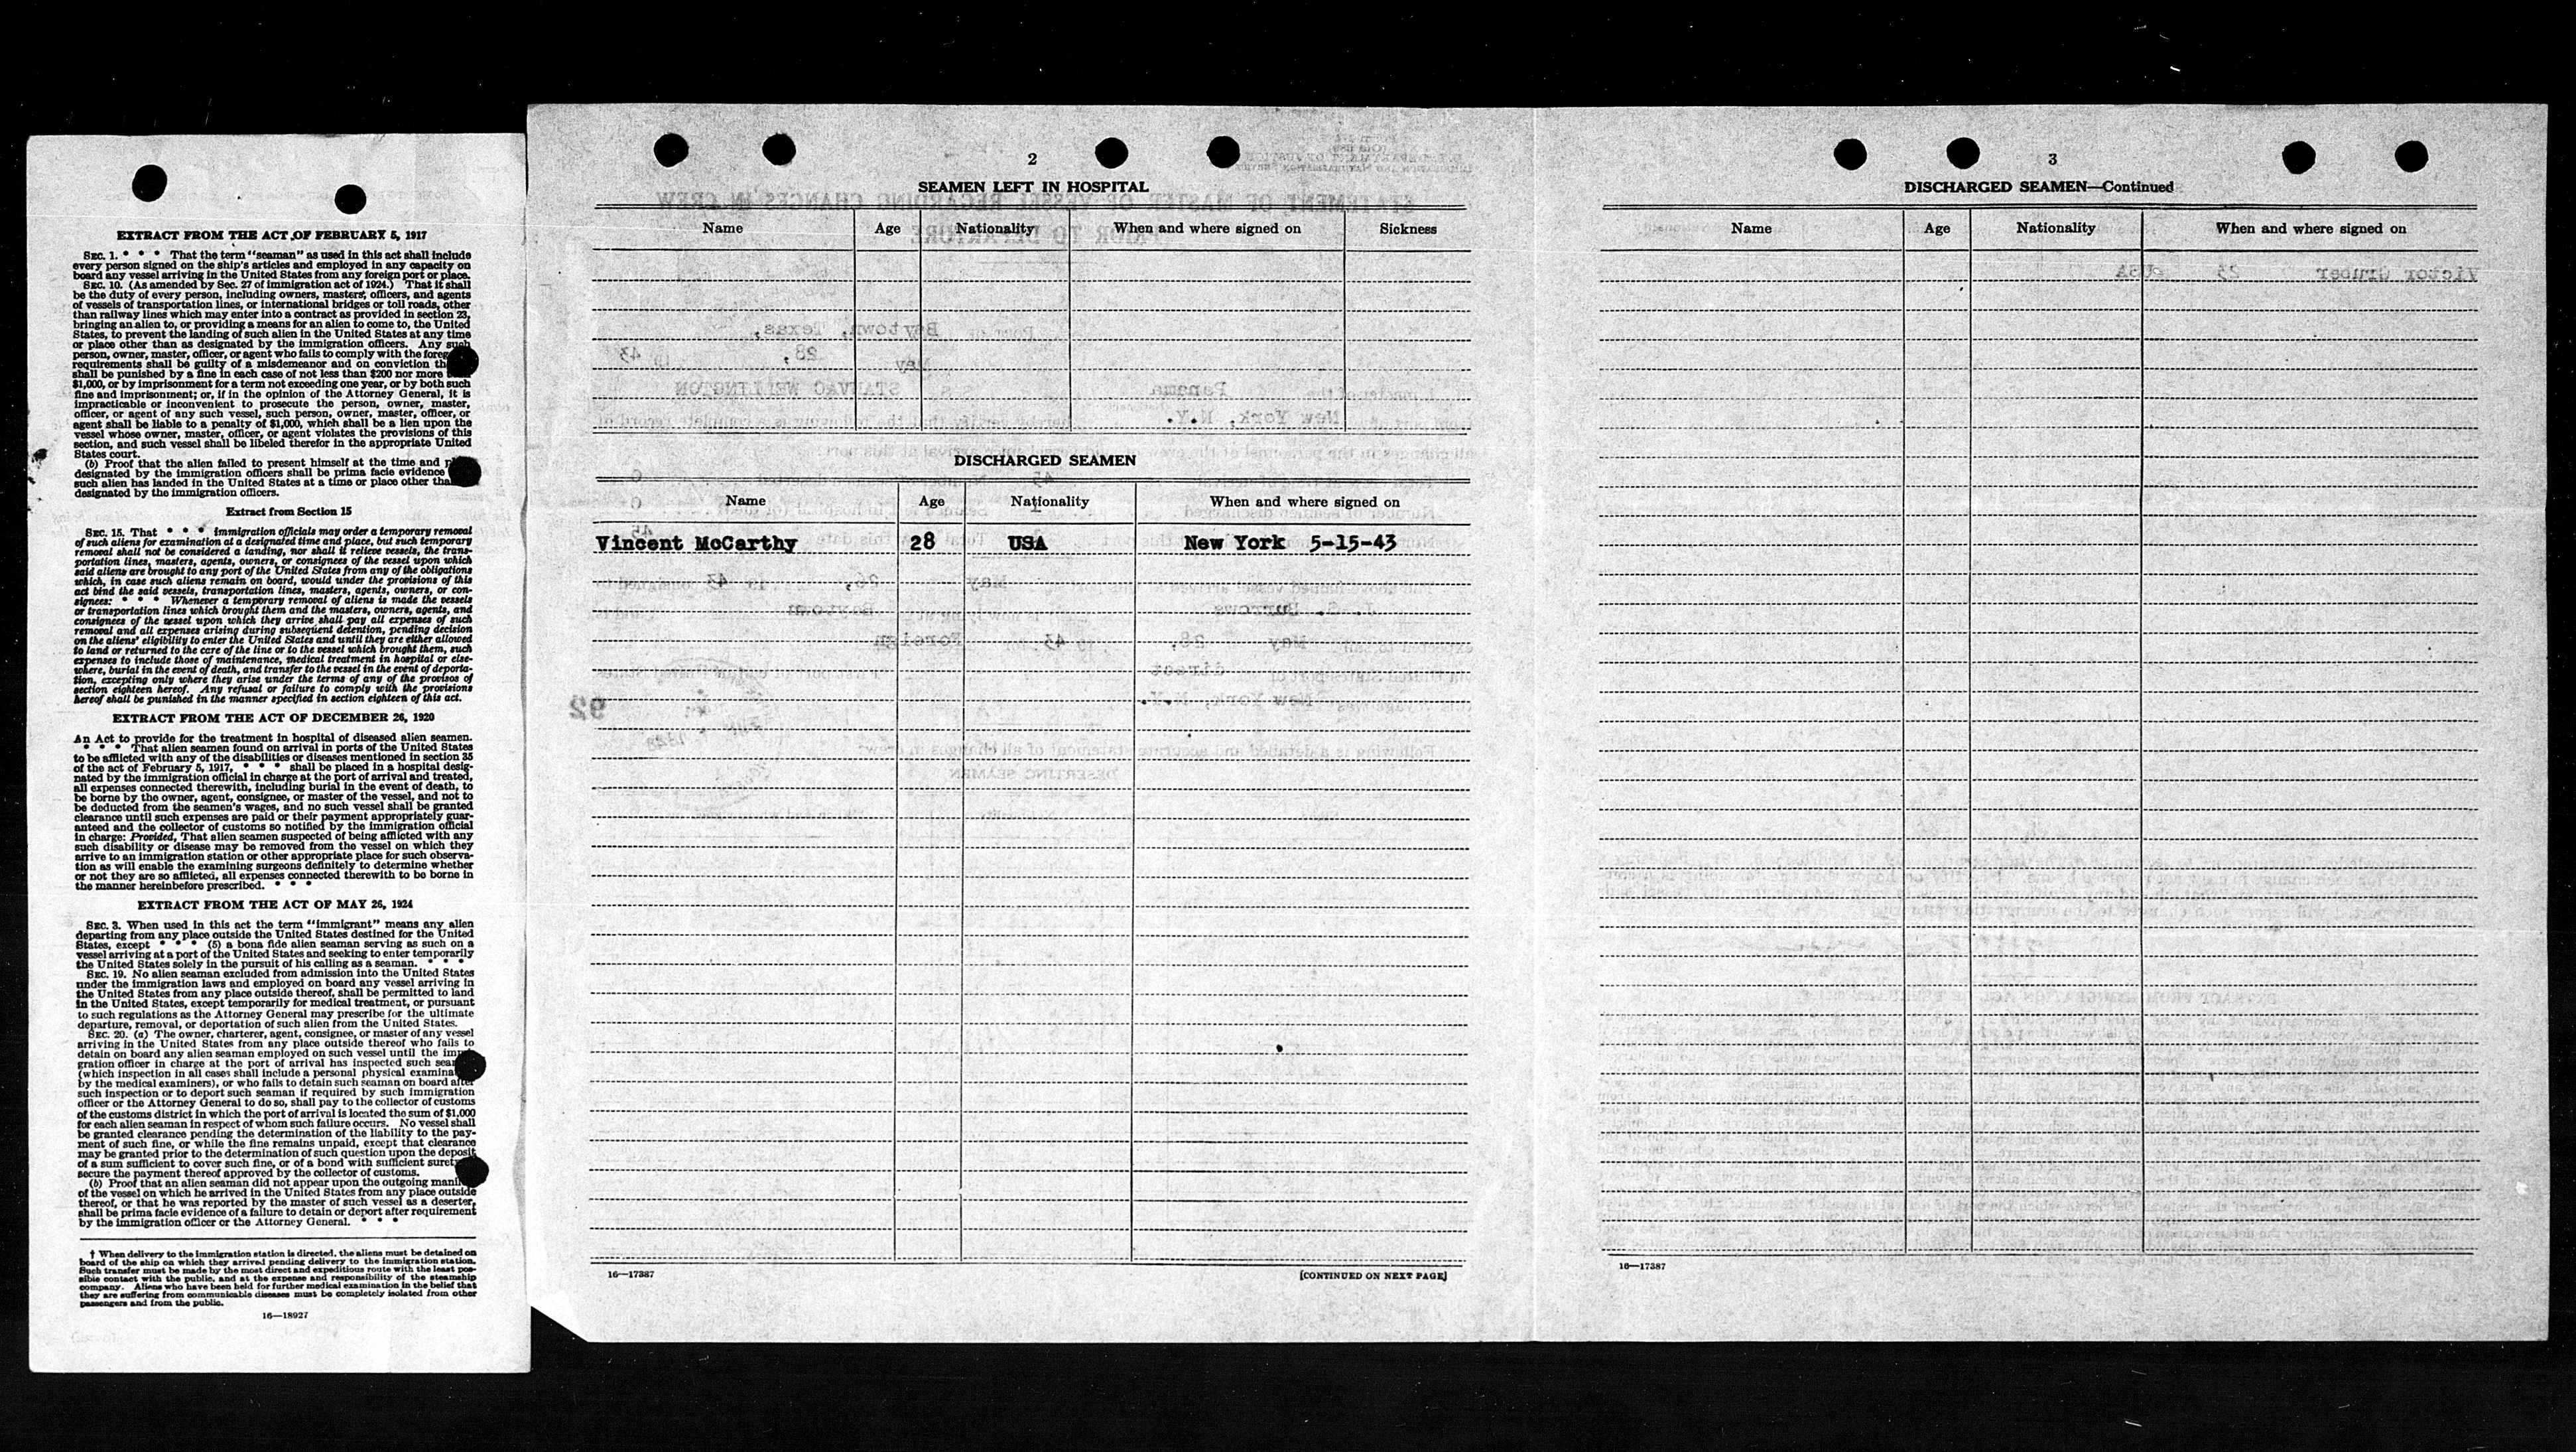 EXTRACT FROM THE ACT OF FEBRUARY 5, 1917
SEC. 1. * * * That the term "seaman" as used in this act shall include
every person signed on the ship's articles and employed in any capacity on
board any vessel arriving in the United States from any foreign port or place.
SEC. 10. (As amended by Sec. 27 of immigration act of 1924.) That it shall
be the duty of every person, including owners, masters, officers, and agents
of vessels of transportation lines, or international bridges or toll roads, other
than railway lines which may enter into a contract as provided in section 23,
bringing an alien to, or providing a means for an alien to come to, the United
States, to prevent the landing of such alien in the United States at any time
or place other than as designated by the immigration officers. Any such
person, owner, master, officer, or agent who fails to comply with the foreg
requirements shall be guilty of a misdemeanor and on conviction th
shall be punished by a fine in each case of not less than $200 nor more
$1,000, or by imprisonment for a term not exceeding one year, or by both such
fine and imprisonment; or, if in the opinion of the Attorney General, it is
impracticable or inconvenient to prosecute the person, owner, master,
officer, or agent of any such vessel, such person, owner, master, officer, or
agent shall be liable to a penalty of $1,000, which shall be a lien upon the
vessel whose owner, master, officer, or agent violates the provisions of this
section, and such vessel shall be libeled therefor in the appropriate United
States court.
(b) Proof that the alien failed to present himself at the time and p
designated by the immigration officers shall be prima facie evidence
such alien has landed in the United States at a time or place other tha
designated by the immigration officers.
Extract from Section 15
SEC. 15. That * * * immigration officials may order a temporary removal
of such aliens for examination at a designated time and place, but such temporary
removal shall not be considered a landing, nor shall it relieve vessels, the trans-
portation lines, masters, agents, owners, or consignees of the vessel upon which
said aliens are brought to any port of the United States from any of the obligations
which, in case such aliens remain on board, would under the provisions of this
act bind the said vessels, transportation lines, masters, agents, owners, or con-
signees: * * * Whenever a temporary removal of aliens is made the vessels
or transportation lines which brought them and the masters, owners, agents, and
consignees of the vessel upon which they arrive shall pay all expenses of such
removal and all expenses arising during subsequent detention, pending decision
on the aliens' eligibility to enter the United States and until they are either allowed
to land or returned to the care of the line or to the vessel which brought them, such
expenses to include those of maintenance, medical treatment in hospital or else-
where, burial in the event of death, and transfer to the vessel in the event of deporta-
tion, excepting only where they arise under the terms of any of the provisos of
section eighteen hereof. Any refusal or failure to comply with the provisions
hereof shall be punished in the manner specified in section eighteen of this act.
EXTRACT FROM THE ACT OF DECEMBER 26, 1920
An Act to provide for the treatment in hospital of diseased alien seamen.
* * * That alien seamen found on arrival in ports of the United States
to be afflicted with any of the disabilities or diseases mentioned in section 35
of the act of February 5, 1917, * * * shall be placed in a hospital desig-
nated by the immigration official in charge at the port of arrival and treated,
all expenses connected therewith, including burial in the event of death, to
be borne by the owner, agent, consignee, or master of the vessel, and not to
be deducted from the seamen's wages, and no such vessel shall be granted
clearance until such expenses are paid or their payment appropriately guar-
anteed and the collector of customs so notified by the immigration official
in charge: Provided, That alien seamen suspected of being afflicted with any
such disability or disease may be removed from the vessel on which they
arrive to an immigration station or other appropriate place for such observa-
tion as will enable the examining surgeons definitely to determine whether
or not they are so afflicted, all expenses connected therewith to be borne in
the manner hereinbefore prescribed. * * *
EXTRACT FROM THE ACT OF MAY 26, 1924
SEC. 3. When used in this act the term "immigrant" means any alien
departing from any place outside the United States destined for the United
States, except * * * (5) a bona fide alien seaman serving as such on a
vessel arriving at a port of the United States and seeking to enter temporarily
the United States solely in the pursuit of his calling as a seaman. * * *
SEC. 19. No alien seaman excluded from admission into the United States
under the immigration laws and employed on board any vessel arriving in
the United States from any place outside thereof, shall be permitted to land
in the United States, except temporarily for medical treatment, or pursuant
to such regulations as the Attorney General may prescribe for the ultimate
departure, removal, or deportation of such alien from the United States.
SEC. 20. (a) The owner, charterer, agent, consignee, or master of any vessel
arriving in the United States from any place outside thereof who fails to
detain on board any alien seaman employed on such vessel until the immi-
gration officer in charge at the port of arrival has inspected such sea
(which inspection in all cases shall include a personal physical examina
by the medical examiners), or who fails to detain such seaman on board after
such inspection or to deport such seaman if required by such immigration
officer or the Attorney General to do so, shall pay to the collector of customs
of the customs district in which the port of arrival is located the sum of $1,000
for each alien seaman in respect of whom such failure occurs. No vessel shall
be granted clearance pending the determination of the liability to the pay-
ment of such fine, or while the fine remains unpaid, except that clearance
may be granted prior to the determination of such question upon the deposit
of a sum sufficient to cover such fine, or of a bond with sufficient surety
secure the payment thereof approved by the collector of customs.
(b) Proof that an alien seaman did not appear upon the outgoing mani
of the vessel on which he arrived in the United States from any place outside
thereof, or that he was reported by the master of such vessel as a deserter,
shall be prima facie evidence of a failure to detain or deport after requirement
by the immigration officer or the Attorney General. * * *
† When delivery to the immigration station is directed, the aliens must be detained on
board of the ship on which they arrived pending delivery to the immigration station.
Such transfer must be made by the most direct and expeditious route with the least pos-
sible contact with the public, and at the expense and responsibility of the steamship
company. Aliens who have been held for further medical examination in the belief that
they are suffering from communicable diseases must be completely isolated from other
passengers and from the public.
16—18927
2
SEAMEN LEFT IN HOSPITAL
Name Age Nationality When and where signed on Sickness
DISCHARGED SEAMEN
Name Age Nationality When and where signed on
Vincent McCarthy 28 USA New York 5-15-43
16—17387 [CONTINUED ON NEXT PAGE]
3
DISCHARGED SEAMEN—Continued
Name Age Nationality When and where signed on
16—17387